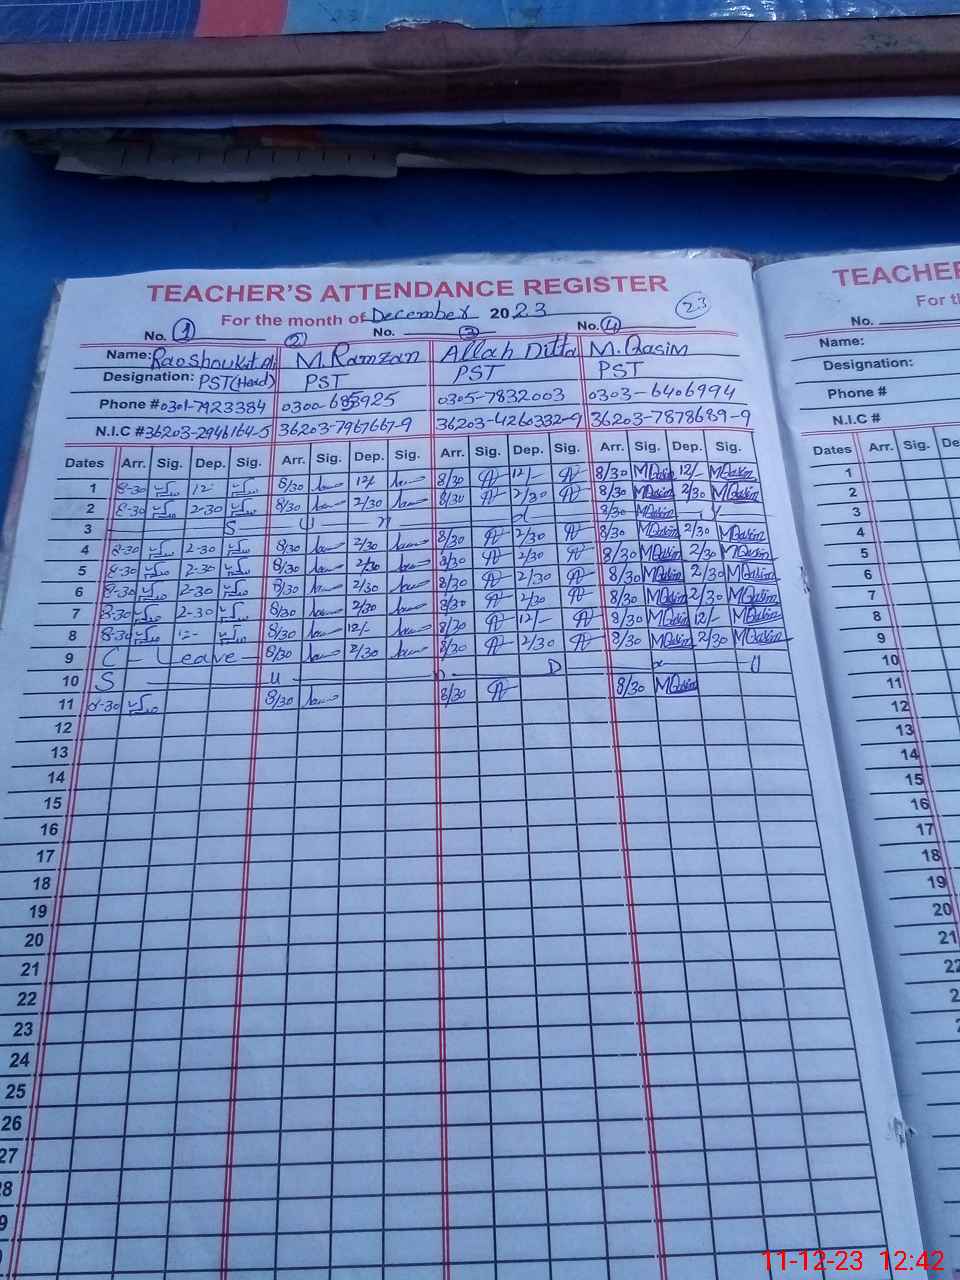 TEACHER'S ATTENDANCE REGISTER
For the month of December 2023
23
No. 1 2 No. 3 No. 4
Name: Rao Shoukat Ali M. Ramzan Allah Ditta M. Qasim
Designation: PST (Head) PST PST PST
Phone # 0301-7923384 0305-7832003 0303-6406994
N.I.C # 36203-2946164-5 36203-7967667-9 36203-4260332-9 36203-7878689-9
Dates Arr. Sig. Dep. Sig. Arr. Sig. Dep. Sig. Arr. Sig. Dep. Sig. Arr. Sig. Dep. Sig.
1 8-30 12- 8/30 12/- 8/30 12/- 8/30 MQasim 12/- MQasim
2 8-30 2-30 8/30 2/30 8/30 2/30 8/30 MQasim 2/30 MQasim
3 S U n d 8/30 MQasim y
4 8-30 2-30 8/30 2/30 8/30 2/30 8/30 MQasim 2/30 MQasim
5 8-30 2-30 8/30 2/30 8/30 2/30 8/30 MQasim 2/30 MQasim
6 8-30 2-30 8/30 2/30 8/30 2/30 8/30 MQasim 2/30 MQasim
7 8-30 2-30 8/30 2/30 8/30 2/30 8/30 MQasim 2/30 MQasim
8 8-30 12- 8/30 12/- 8/30 12/- 8/30 MQasim 12/- MQasim
9 C - Leave 8/30 2/30 8/30 2/30 8/30 MQasim 2/30 MQasim
10 S U n D a y
11 8-30 8/30 8/30 8/30 MQasim
12
13
14
15
16
17
18
19
20
21
22
23
24
25
26
27
28
9
TEACHER
For th
No.
Name:
Designation:
Phone #
N.I.C #
Dates Arr. Sig. De
1
2
3
4
5
6
7
8
9
10
11
12
13
14
15
16
17
18
19
20
21
22
2
11-12-23 12:42